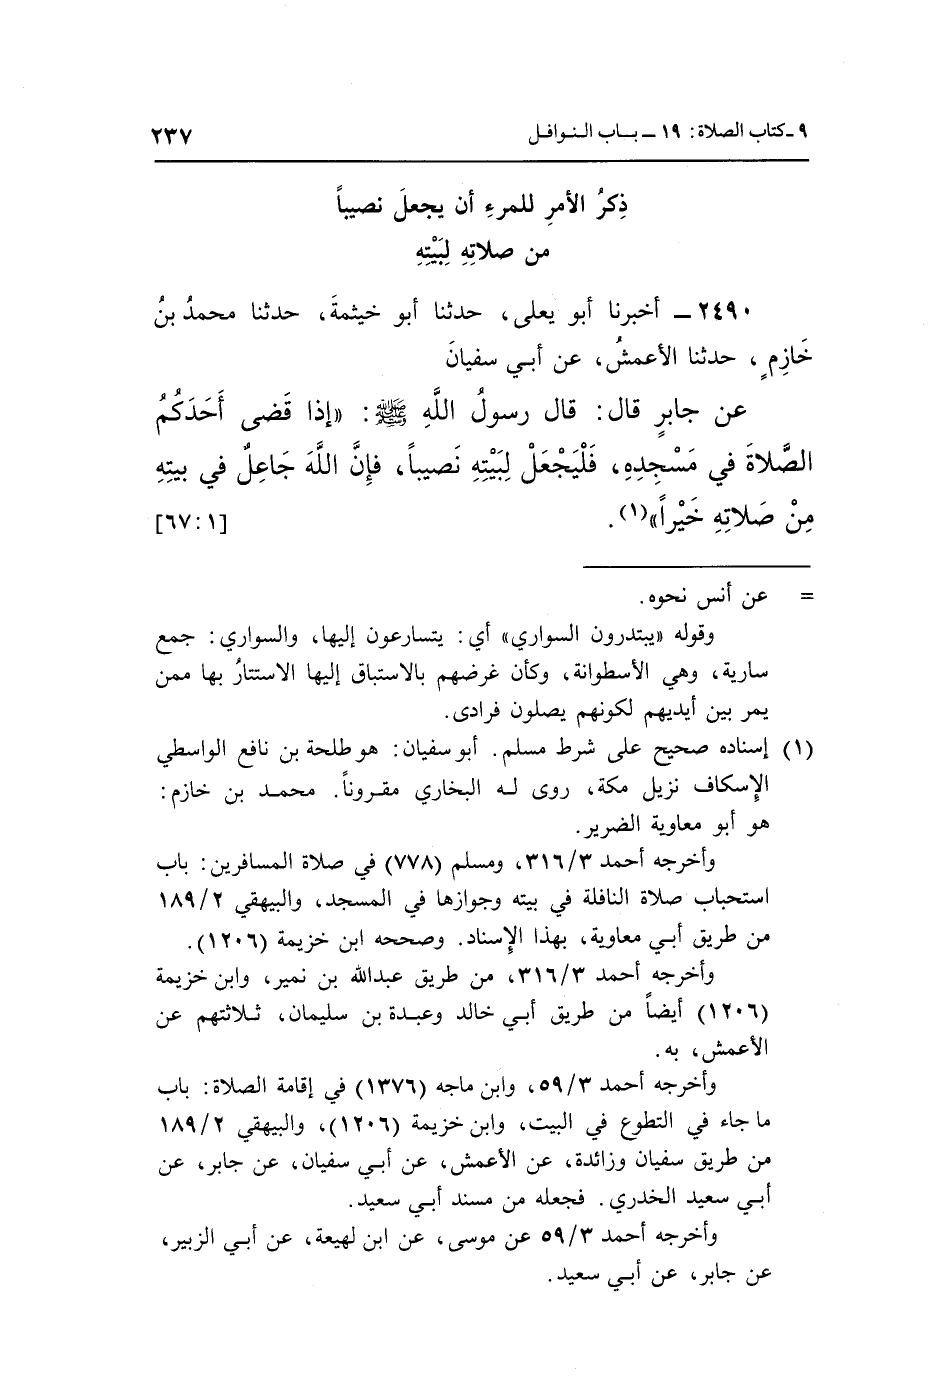 ٩ ـ كتاب الصلاة: ١٩ ـ بـاب النـوافـل ٢٣٧
ذِكرُ الأمرِ للمرءِ أن يجعلَ نصيباً
من صلاتِهِ لِبَيْتِهِ
٢٤٩٠ ـ أخبرنا أبو يعلى، حدثنا أبو خيثمةَ، حدثنا محمدُ بنُ
خَازِمٍ، حدثنا الأعمشُ، عن أبـي سفيانَ
عن جابرٍ قال: قال رسولُ اللَّهِ ﷺ: «إذا قَضى أَحَدَكُمُ
الصَّلاةَ في مَسْجِدِهِ، فَلْيَجْعَلْ لِبَيْتِهِ نَصيباً، فإنَّ اللَّهَ جَاعِلٌ في بيتِهِ
مِنْ صَلاتِهِ خَيْراً»(١). [١ : ٦٧]
= عن أنس نحوه.
وقوله «يبتدرون السواري» أي: يتسارعون إليها، والسواري: جمع
سارية، وهي الأسطوانة، وكأن غرضهم بالاستباق إليها الاستتارُ بها ممن
يمر بين أيديهم لكونهم يصلون فرادى.
(١) إسناده صحيح على شرط مسلم. أبو سفيان: هو طلحة بن نافع الواسطي
الإسكاف نزيل مكة، روى لـه البخاري مقـروناً. محمـد بن خازم:
هو أبو معاوية الضرير.
وأخرجه أحمد ٣١٦/٣، ومسلم (٧٧٨) في صلاة المسافرين: باب
استحباب صلاة النافلة في بيته وجوازها في المسجد، والبيهقي ١٨٩/٢
من طريق أبـي معاوية، بهذا الإسناد. وصححه ابن خزيمة (١٢٠٦).
وأخرجه أحمد ٣١٦/٣، من طريق عبدالله بن نمير، وابن خزيمة
(١٢٠٦) أيضاً من طريق أبـي خالد وعبـدة بن سليمان، ثـلاثتهم عن
الأعمش، به.
وأخرجه أحمد ٥٩/٣، وابن ماجه (١٣٧٦) في إقامة الصلاة: باب
ما جاء في التطوع في البيت، وابن خزيمة (١٢٠٦)، والبيهقي ١٨٩/٢
من طريق سفيان وزائدة، عن الأعمش، عن أبـي سفيان، عن جابر، عن
أبـي سعيد الخدري. فجعله من مسند أبـي سعيد.
وأخرجه أحمد ٥٩/٣ عن موسى، عن ابن لهيعة، عن أبـي الزبير،
عن جابر، عن أبـي سعيد.